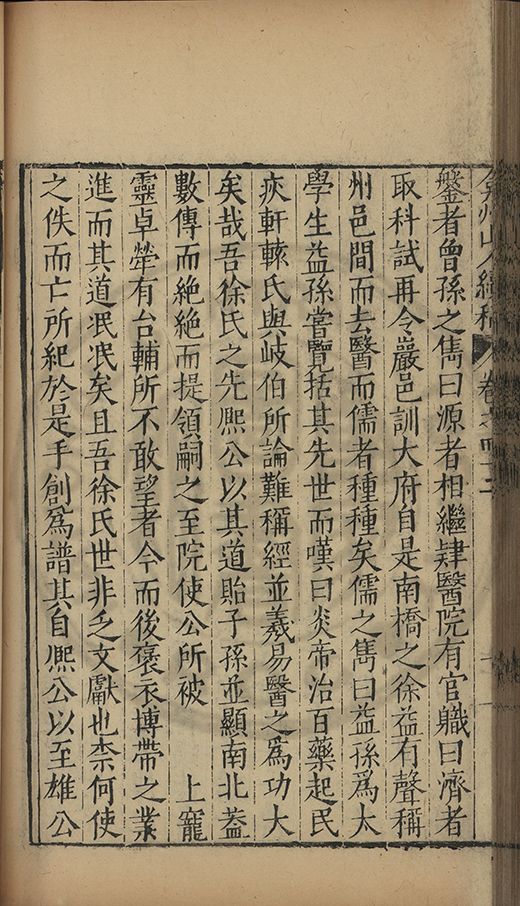 弇州山人續稿 卷之四十二
鎜者曾孫之雋曰源者相繼肄醫院有官職曰濟者
取科試再令嚴邑訓大府自是南橋之徐益有聲稱
州邑間而去醫而儒者種種矣儒之雋曰益孫爲太
學生益孫嘗覽括其先世而嘆曰炎帝治百藥起民
疢軒轅氏與岐伯所論難稱經並羲易醫之爲功大
矣哉吾徐氏之先熈公以其道貽子孫並顯南北葢
數傳而絶絶而提領嗣之至院使公所被 上寵
靈卓犖有台輔所不敢望者今而後褒衣博帶之業
進而其道泯泯矣且吾徐氏世非乏文獻也柰何使
之佚而亡所紀於是手創爲譜其自熈公以至雄公